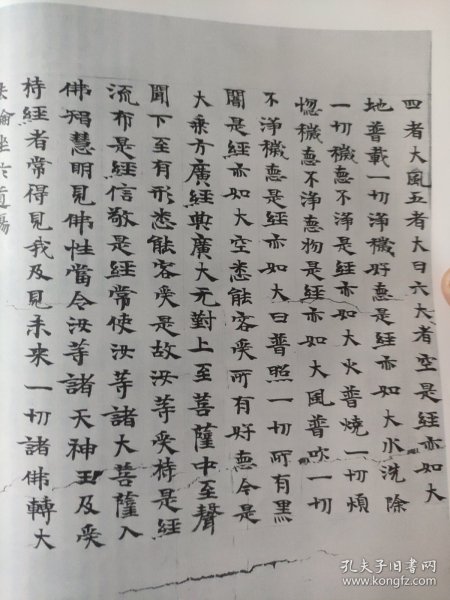 四者大風五者大日六大者空是経亦如大
地普載一切淨穢好惡是経亦如大水洗除
一切穢惡不淨是経亦如大火普燒一切煩
惱穢惡不淨惡物是経亦如大風普吹一切
不淨穢惡是経亦如大日普照一切所有黒
闇是経亦如大空悉能容受所有好惡令是
大乗方廣経典廣大无對上至菩薩中至聲
聞下至有形悉能容受是故汝等受持是経
流布是経信敬是経常使汝等諸大菩薩入
佛智慧明見佛性當令汝等諸天神王及受
持経者常得見我及見未來一切諸佛轉大
孔夫子旧书网
www.kongfz.com